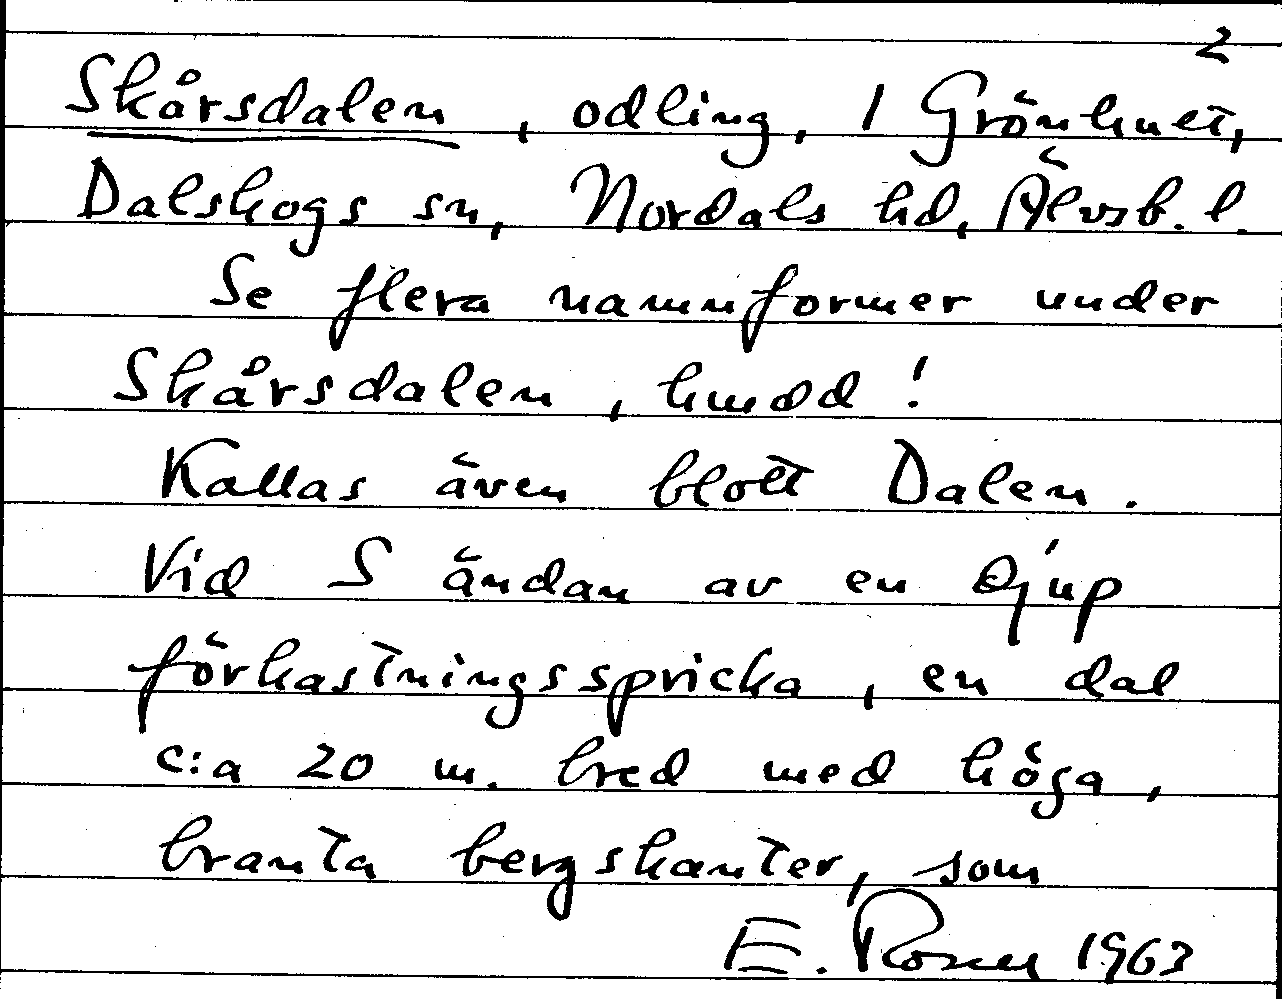 2
Skårsdalen, odling, 1 Grönhult,
Dalskogs sn, Nordals hd, Älvsb. l.
Se flera namnformer under
Skårsdalen, hmod!
Kallas även blott Dalen.
Vid S ändan av en djup
förkastningsspricka, en dal
c:a 20 m. bred med höga,
branta bergskanter, som
E. Rosen 1963